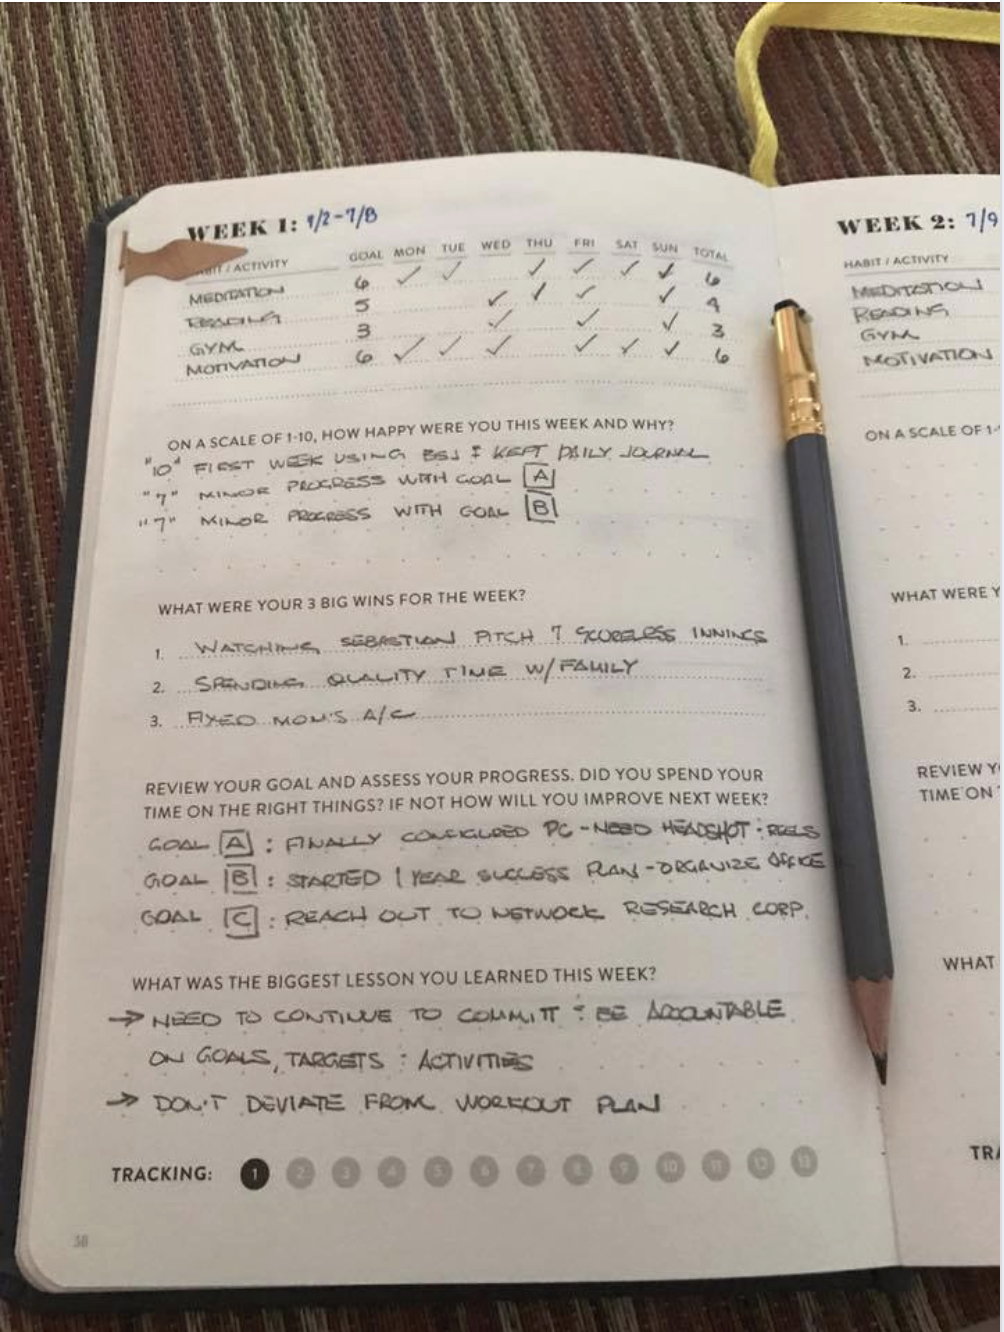 WEEK 1: 7/2-7/8
/ ACTIVITY GOAL MON TUE WED THU FRI SAT SUN TOTAL
MEDITATION 6 ✓ ✓ ✓ ✓ ✓ ✓ 6
READING 5 ✓ ✓ ✓ ✓ 4
GYM 3 ✓ ✓ ✓ 3
MOTIVATION 6 ✓ ✓ ✓ ✓ ✓ ✓ 6
ON A SCALE OF 1-10, HOW HAPPY WERE YOU THIS WEEK AND WHY?
"10" FIRST WEEK USING BSJ & KEPT DAILY JOURNAL
"7" MINOR PROGRESS WITH GOAL A
"7" MINOR PROGRESS WITH GOAL B
WHAT WERE YOUR 3 BIG WINS FOR THE WEEK?
1. WATCHING SEBASTIAN PITCH 7 SCORELESS INNINGS
2. SPENDING QUALITY TIME W/FAMILY
3. FIXED MOM'S A/C
REVIEW YOUR GOAL AND ASSESS YOUR PROGRESS. DID YOU SPEND YOUR
TIME ON THE RIGHT THINGS? IF NOT HOW WILL YOU IMPROVE NEXT WEEK?
GOAL A : FINALLY CONFIGURED PC - NEED HEADSHOT & REELS
GOAL B : STARTED 1 YEAR SUCCESS PLAN - ORGANIZE OFFICE
GOAL C : REACH OUT TO NETWORK RESEARCH CORP.
WHAT WAS THE BIGGEST LESSON YOU LEARNED THIS WEEK?
→ NEED TO CONTINUE TO COMMITT & BE ACCOUNTABLE
ON GOALS, TARGETS & ACTIVITIES
→ DON'T DEVIATE FROM WORKOUT PLAN
TRACKING: 1 2 3 4 5 6 7 8 9 10 11 12 13
38
WEEK 2: 7/9
HABIT / ACTIVITY
MEDITATION
READING
GYM
MOTIVATION
ON A SCALE OF 1-
WHAT WERE Y
1.
2.
3.
REVIEW Y
TIME ON
WHAT
TR